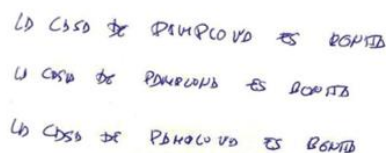 LA CASA DE PAMPLONA ES BONITA
LA CASA DE PAMPLONA ES BONITA
LA CASA DE PAMPLONA ES BONITA